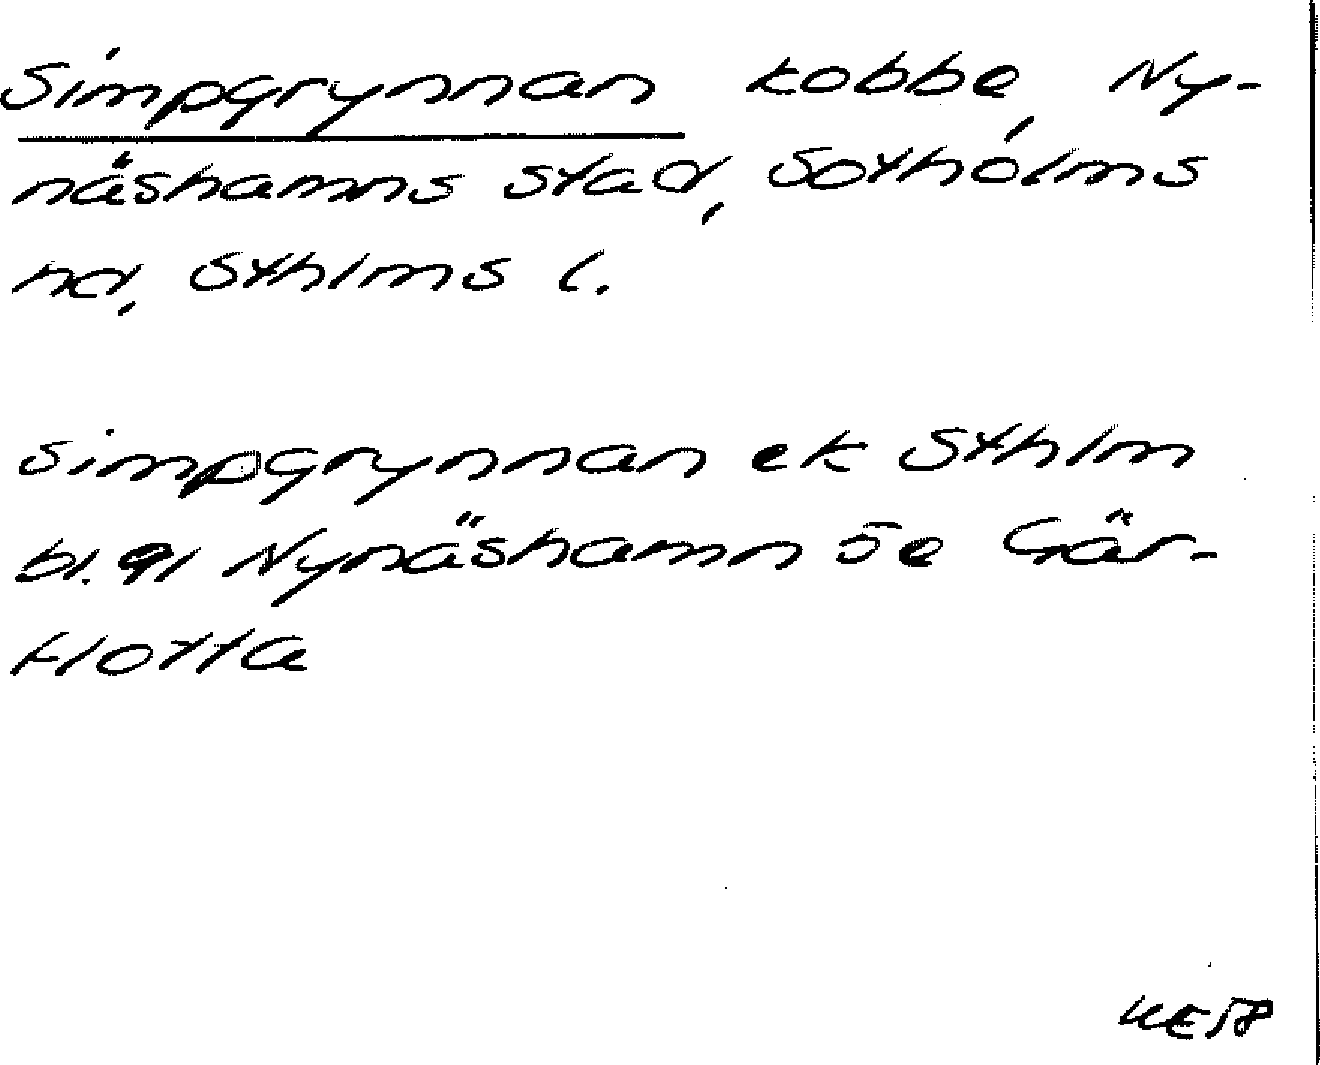 Simpgrynnan kobbe, Ny-
näshamns stad, Sotholms
hd, Sthlms l.
Simpgrynnan ek Sthlm
bl. 91 Nynäshamn öe Gär-
klotta